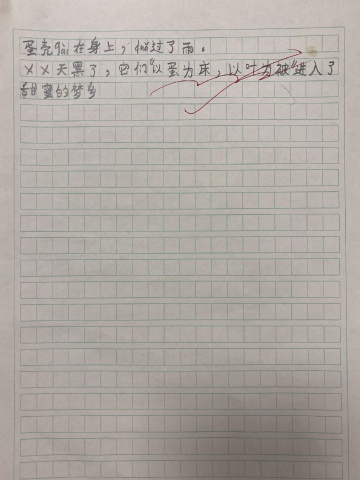 蛋壳gai在身上，duǒ过了雨。
××天黑了，它们以蛋为床，以叶为被进入了
甜蜜的梦乡